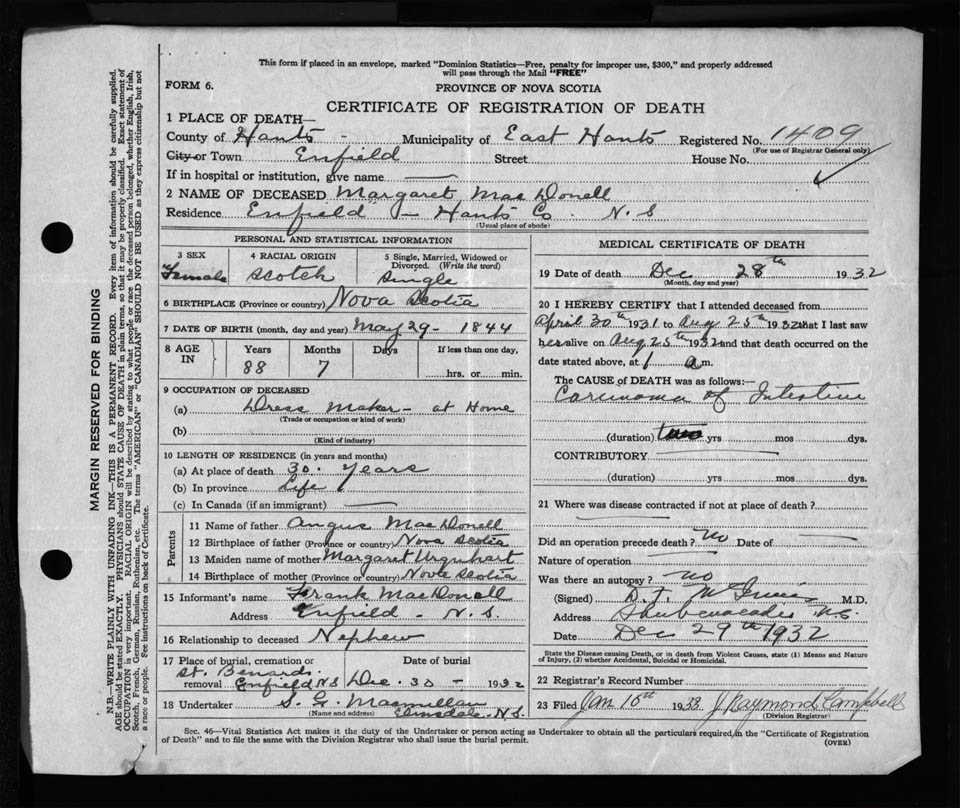 This form if placed in an envelope, marked "Dominion Statistics—Free, penalty for improper use, $300," and properly addressed
will pass through the Mail "FREE"
FORM 6.
PROVINCE OF NOVA SCOTIA
CERTIFICATE OF REGISTRATION OF DEATH
1 PLACE OF DEATH—
County of Hants - Municipality of East Hants Registered No. 1409
(For use of Registrar General only)
City or Town Enfield Street House No.
If in hospital or institution, give name
2 NAME OF DECEASED Margaret MacDonell
Residence Enfield - Hants Co. N.S
(Usual place of abode)
PERSONAL AND STATISTICAL INFORMATION
3 SEX Female
4 RACIAL ORIGIN Scotch
5 Single, Married, Widowed or Divorced. (Write the word) Single
6 BIRTHPLACE (Province or country) Nova Scotia
7 DATE OF BIRTH (month, day and year) May 29 - 1844
8 AGE IN Years Months Days If less than one day,
88 7 hrs. or min.
9 OCCUPATION OF DECEASED
(a) Dress Maker - at Home
(Trade or occupation or kind of work)
(b)
(Kind of industry)
10 LENGTH OF RESIDENCE (in years and months)
(a) At place of death 30. years
(b) In province Life
(c) In Canada (if an immigrant)
Parents
11 Name of father Angus MacDonell
12 Birthplace of father (Province or country) Nova Scotia
13 Maiden name of mother Margaret Urquhart
14 Birthplace of mother (Province or country) Nova Scotia
15 Informant's name Frank MacDonell
Address Enfield - N.S.
16 Relationship to deceased Nephew
17 Place of burial, cremation or removal St. Benard. Enfield NS
Date of burial Dec. 30 - 1932
18 Undertaker S. G. Macmillan
(Name and address) Elmsdale. N.S.
MEDICAL CERTIFICATE OF DEATH
19 Date of death Dec 28th 1932
(Month, day and year)
20 I HEREBY CERTIFY that I attended deceased from
April 30th 1931 to Aug 25th 1932 that I last saw
her alive on Aug 25th 1932 and that death occurred on the
date stated above, at 1 a m.
The CAUSE OF DEATH was as follows:—
Carcinoma of Intestine
(duration) two yrs mos dys.
CONTRIBUTORY
(duration) yrs mos dys.
21 Where was disease contracted if not at place of death?
Did an operation precede death? no Date of
Nature of operation
Was there an autopsy? no
(Signed) D.T. M.D.
Address Shubenacadie N.S
Date Dec 29th 1932
State the Disease causing Death, or in death from Violent Causes, state (1) Means and
Nature of Injury, (2) whether Accidental, Suicidal or Homicidal.
22 Registrar's Record Number
23 Filed Jan 10th 1933 J Raymond Campbell
(Division Registrar)
Sec. 46—Vital Statistics Act makes it the duty of the Undertaker or person acting as Undertaker to obtain all the particulars required in the "Certificate of Registration
of Death" and to file the same with the Division Registrar who shall issue the burial permit.
(OVER)
MARGIN RESERVED FOR BINDING
N.B.—WRITE PLAINLY WITH UNFADING INK—THIS IS A PERMANENT RECORD. Every item of information should be carefully supplied.
AGE should be stated EXACTLY. PHYSICIANS should STATE CAUSE OF DEATH in plain terms, so that it may be properly classified. Exact statement of
OCCUPATION is very important. RACIAL ORIGIN will be described by stating to what people or race the deceased person belonged, whether English, Irish,
Scotch, French, German, Russian, Ruthenian, etc. The terms "AMERICAN" or "CANADIAN" SHOULD NOT BE USED as they express citizenship but not
a race or people. Fee instructions on back of Certificate.